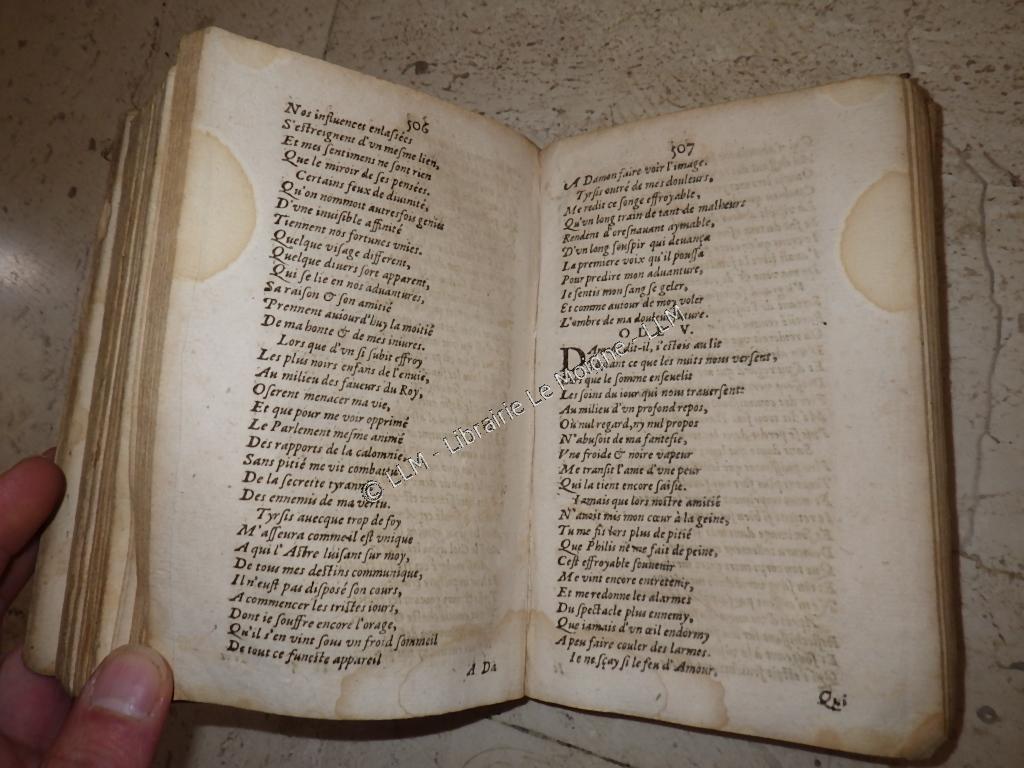 506
Nos influences enlasées
S'estreignent d'vn mesme lien,
Et mes sentimens ne sont rien
Que le miroir de ses pensées.
Certains feux de diuinité,
Qu'on nommoit autresfois genies
D'vne inuisible affinité
Tiennent nos fortunes vnies.
Quelque visage different,
Quelque diuers sort apparent,
Qui se lie en nos aduantures,
Sa raison & son amitié
Prennent auiourd'huy la moitié
De ma honte & de mes iniures.
Lors que d'vn si subit effroy
Les plus noirs enfans de l'enuie,
Au milieu des faueurs du Roy,
Oserent menacer ma vie,
Et que pour me voir opprimé
Le Parlement mesme animé
Des rapports de la calomnie,
Sans pitié me vit combatu
De la secrette tyrannie
Des ennemis de ma vertu.
Tyrsis auecque trop de foy
M'asseura comme il est vnique
A qui l'Astre luisant sur moy,
De tous mes destins communique,
Il n'eust pas disposé son cours,
A commencer les tristes iours,
Dont ie souffre encore l'orage,
Qu'il s'en vint sous vn froid sommeil
De tout ce funeste appareil
A Da
507
A Damon faire voir l'image.
Tyrsis outré de mes douleurs,
Me redit ce songe effroyable,
Qu'vn long train de tant de malheurs
Rendent d'oresnauant aymable,
D'vn long souspir qui deuança
La premiere voix qu'il poussa
Pour predire mon aduanture,
Ie sentis mon sang se geler,
Et comme autour de moy voler
L'ombre de ma douleur future.
ODE V.
DAmon dit-il, i'estois au lit
Goustant ce que les nuits nous versent,
que le somme enseuelit
Les soins du iour qui nous trauersent:
Au milieu d'vn profond repos,
Où nul regard, ny nul propos
N'abusoit de ma fantesie,
Vne froide & noire vapeur
Me transit l'ame d'vne peur
Qui la tient encore saisie.
Iamais que lors nostre amitié
N'auoit mis mon cœur à la geine,
Tu me fis lors plus de pitié
Que Philis ne me fait de peine,
Cest effroyable souuenir
Me vint encore entretenir,
Et me redonne les alarmes
Du spectacle plus ennemy,
Que iamais d'vn œil endormy
A peu faire couler des larmes.
Ie ne sçay si le feu d'Amour,
Qui
© LLM - Librairie Le Moigne - LLM